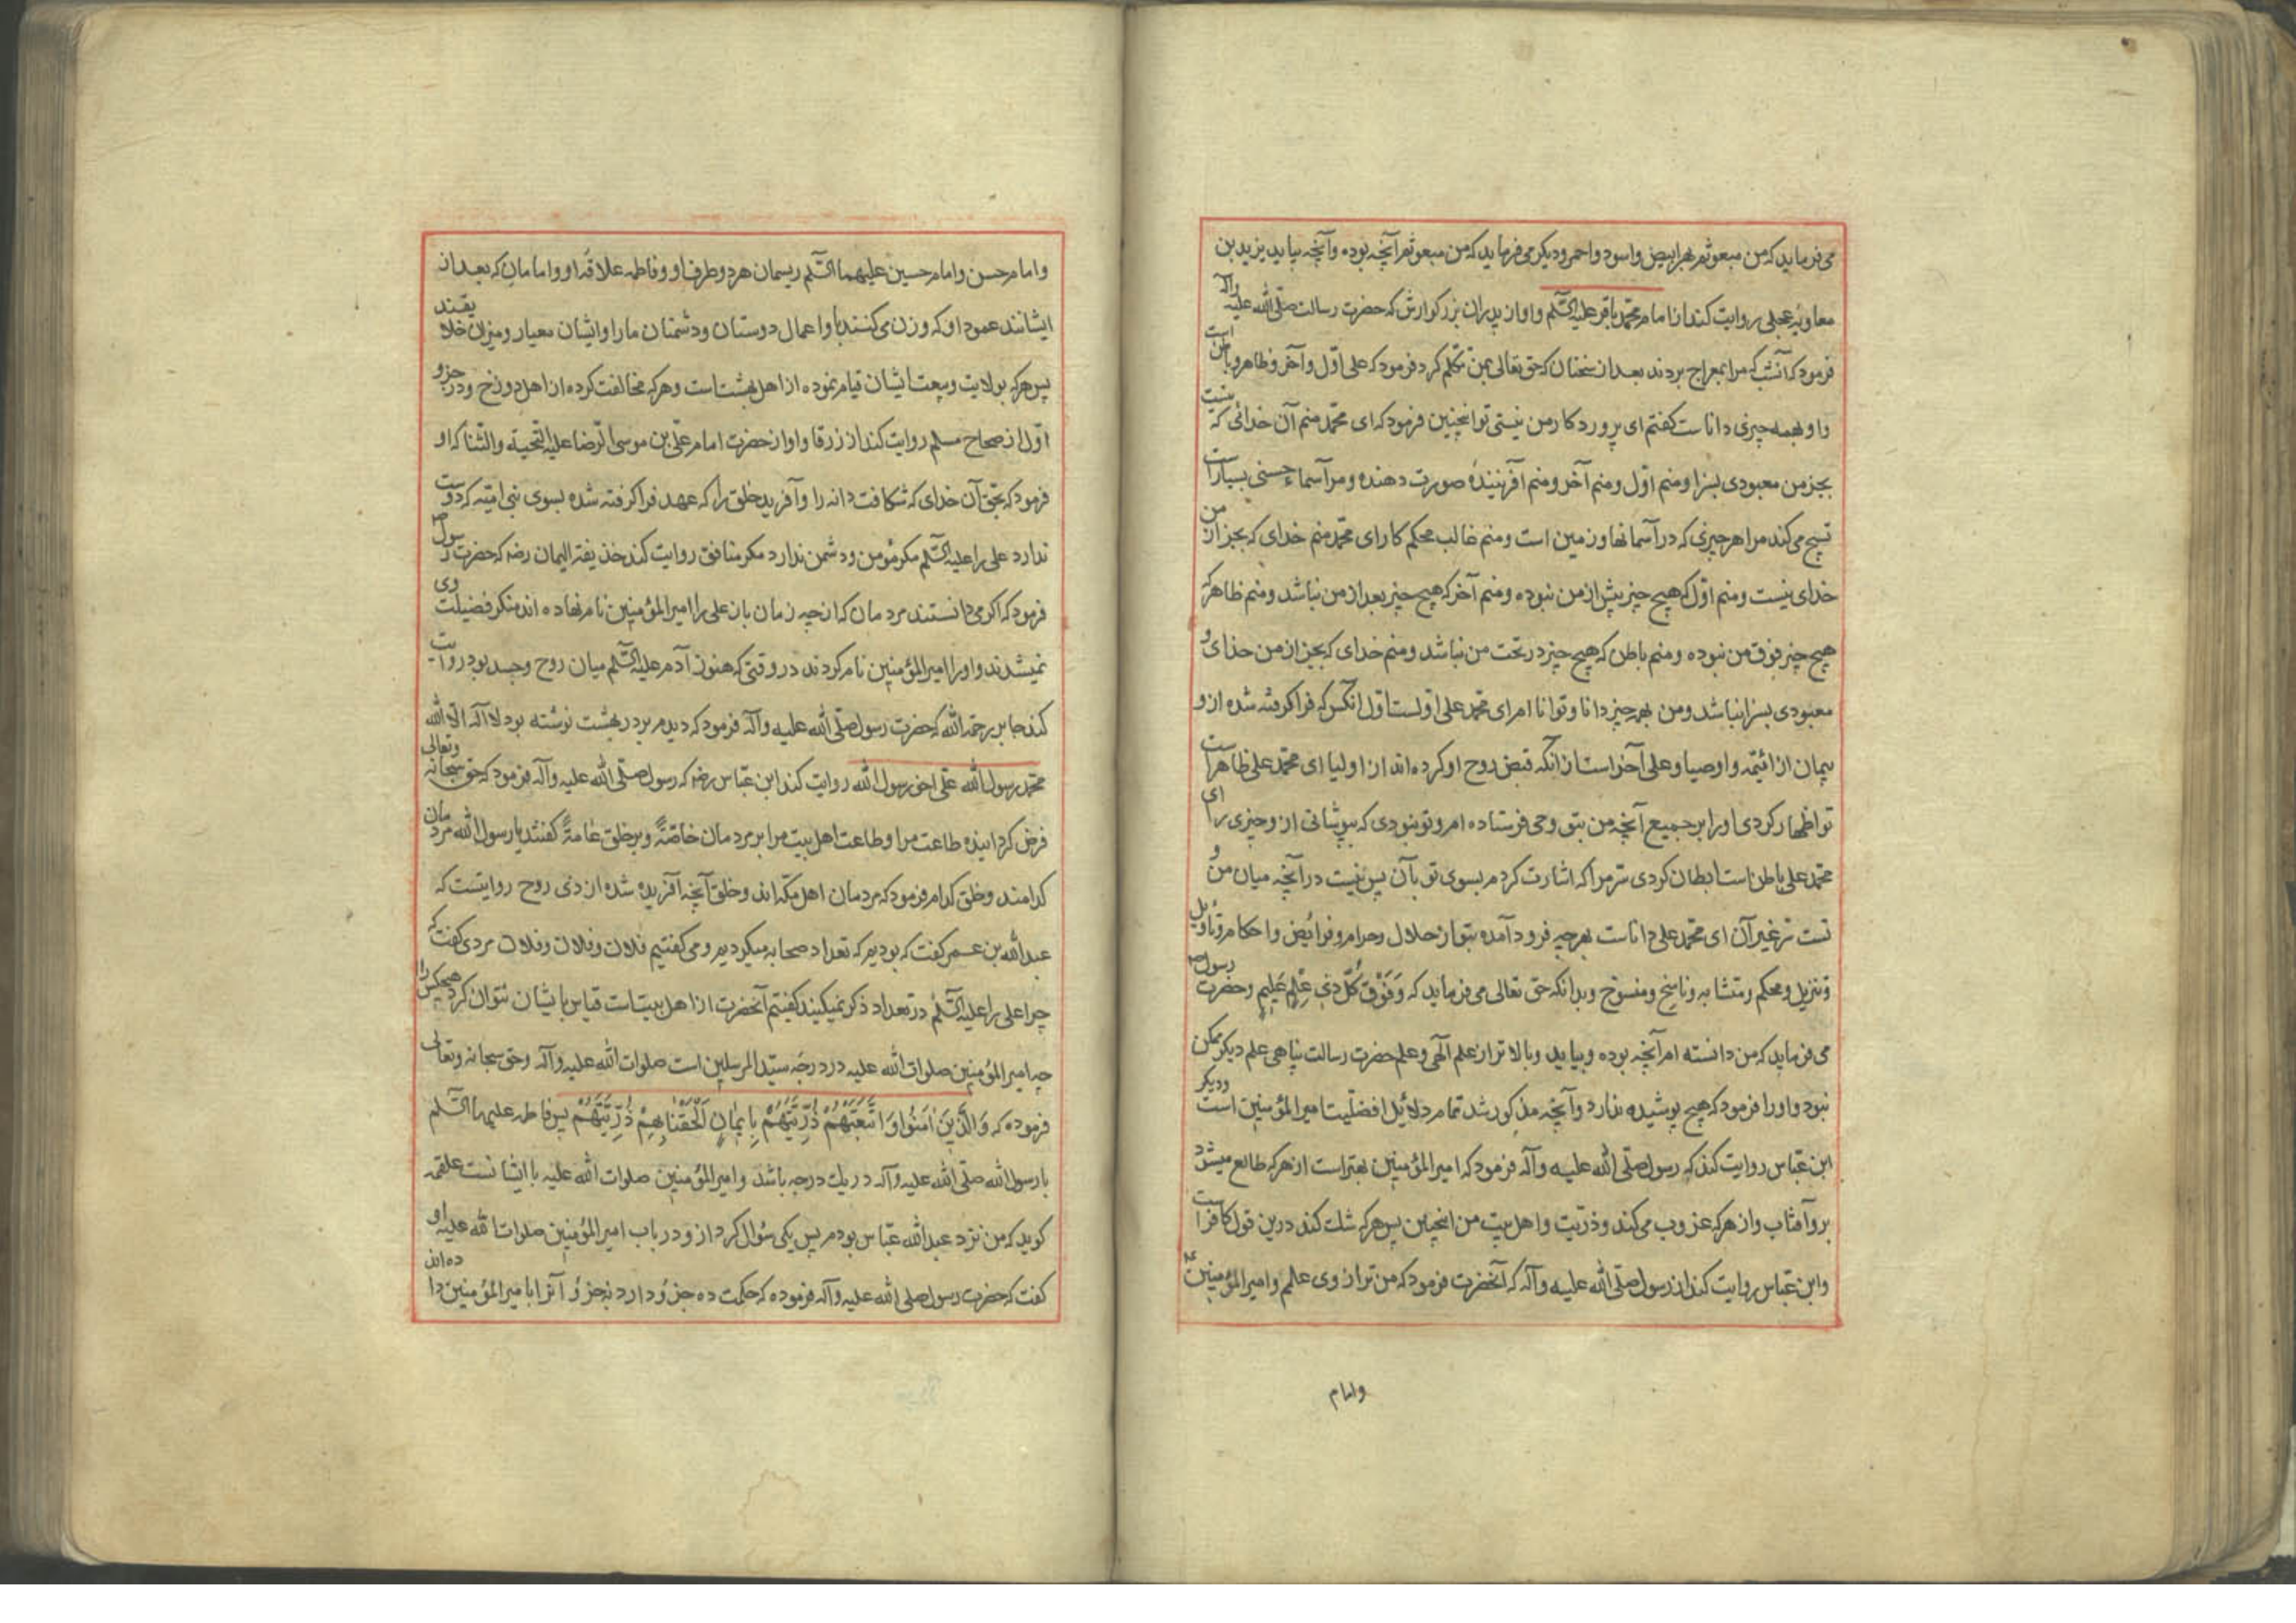 می‌فرماید که من مبعوثم بهر ابیض و اسود و احمر و دیگر می‌فرماید که من مبعوثم آنچه بوده و آنچه بیاید یزید بن
معاویه عجلی روایت کند از امام محمد باقر علیه السّلم و او از پدران بزرگوارش که حضرت رسالت صلّی الله علیه وآله
فرمود که آنشب که مرا بمعراج بردند بعد از سخنان که حق تعالی بمن تکلم کرد فرمود که علی اوّل و آخر و ظاهر و باطن است
و او بهمه چیزی داناست کفتم ای پروردکار من نیستی تو انچنین فرمود که ای محمّد منم آن خدائی که نیست
بجز من معبودی بسزا و منم اوّل و منم آخر و منم آفریننده صورت دهنده و مرا اسماء حسنی بسیار است
تسبیح می‌کند مرا هر چیزی که در آسمانها و زمین است و منم غالب محکم کار ای محمّد منم خدای که بجز از من
خدای نیست و منم اوّل که هیچ چیز پیش از من نبوده و منم آخر که هیچ چیز بعد از من نباشد و منم ظاهر که
هیچ چیز فوق من نبوده و منم باطن که هیچ چیز در تحت من نباشد و منم خدای که بجز از من خدای و
معبودی بسزا نباشد و من بهمه چیز دانا و توانا ام ای محمّد علی اولست اول آنکس که فرا کرفته شده از و
پیمان از ائیمّه و اوصیا و علی آخر است از آنکه قبض روح او کرده‌اند از اولیا ای محمّد علی ظاهر است
تو اظهار کردی او را بر جمیع آنچه من بتو وحی فرستاده ام و تو نبودی که بپوشانی از و چیزی را ای
محمّد علی باطن است ابطان کردی سرّ مرا که اشارت کردم بسوی تو بآن پس نیست در آنچه میان من و
تست سرّ غیر آن ای محمّد علی داناست بهر چیر فرود آمده بتو از حلال و حرام و فرائض و احکام و تأویل
و تنزیل و محکم و متشابه و ناسخ و منسوخ و بدانکه حق تعالی می‌فرماید که وَفَوْقَ كُلِّ ذِي عِلْمٍ عَلِيمٍ و حضرت رسول ص
می‌فرماید که من دانسته ام آنچه بوده و بیاید و بالاتر از علم الٓهی و علم حضرت رسالت پناهی علم دیکر ممکن
نبود و او را فرمود که هیچ پوشیده ندارد و آنچه مذکور شد تمام دلائل افضلّیت امیر المؤمنین است و دیکر
ابن عبّاس روایت کند که رسول صلّی الله علیه وآله فرمود که امیر المؤمنین بهتر است از هر که طالع میشود
برو آفتاب و از هر که غروب می‌کند و ذرّیت و اهل بیت من انچنین پس هر که شک کند درین قول کافر است
و ابن عبّاس روایت کند از رسول صلّی الله علیه وآله که آنحضرت فرمود که من ترازوی علمم و امیر المؤمنین
وامام
و امام حسن و امام حسین علیهما السّلم ریسمان هر دو طرف او و فاطمه علاقه او و امامان که بعد از
ایشانند عمود او که وزن می‌کنند باو اعمال دوستان و دشمنان ما را و ایشان معیار و میزان خلایقند
پس هر که بولایت و بیعت ایشان قیام نموده از اهل بهشت است و هر که مخالفت کرده از اهل دوزخ و در جزو
اوّل از صحاح مسلم روایت کند از زرقا و او از حضرت امام علّی بن موسی الرّضا علیه التّحیة والثّنا که او
فرمود که بحق آن خدای که شکافت دانه را و آفرید خلق را که عهد فرا کرفته شده بسوی نبی امیّه که دوست
ندارد علی را علیه السّلم مکر مؤمن و دشمن ندارد مکر منافق روایت کند خذیفة الیمان رضه که حضرت رسول ص
فرمود که اکر می‌دانستند مردمان که از چه زمان باز علی را امیر المؤمنین نام نهاده اند منکر فضیلت وی
نمیشدند و او را امیر المؤمنین نام کردند در وقتی که هنوز آدم علیه السّلم میان روح و جسد بود روایت
کند جابر رحمه الله که حضرت رسول صلّی الله علیه وآله فرمود که دیدم بر در بهشت نوشته بود لا آله الّا الله
محمّد رسول الله علی اخو رسول الله روایت کند ابن عبّاس رضه که رسول صلّی الله علیه وآله فرمود که حق سبحانه وتعالی
فرض کردانیده طاعت مرا و طاعت اهل بیت مرا بر مردمان خاصّةً و بر خلق عامةً کفتند یا رسول الله مردمان
کدامند و خلق کدام فرمود که مردمان اهل مکّه اند و خلق آنچه آفریده شده از ذی روح روایتست که
عبد الله بن عمر کفت که بودیم که تعداد صحابه میکردیم و می‌کفتیم فلان و فلان و فلان مردی کفت که
چرا علی را علیه السّلم در تعداد ذکر نمیکنید کفتم آنحضرت از اهل بیتست قیاس بایشان نتوان کرد هیچکس را
چه امیر المؤمنین صلوات الله علیه در درجه سیّد المرسلین است صلوات الله علیه وآله و حق سبحانه وتعالی
فرموده که وَالَّذِينَ اٰمَنُوا وَاتَّبَعَتْهُمْ ذُرِّيَّتُهُمْ بِإِيمَانٍ اَلْحَقْنَا بِهِمْ ذُرِّيَّتَهُمْ پس فاطمه علیهما السّلم
با رسول الله صلّی الله علیه وآله در یک درجه باشد و امیر المؤمنین صلوات الله علیه با ایشانست علقمه
کوید که من نزد عبد الله عبّاس بودم پس یکی سؤال کرد از و در باب امیر المؤمنین صلوات الله علیه او
کفت که حضرت رسول صلی الله علیه وآله فرموده که حکمت ده جزؤ دارد نه جزؤ آنرا بامیر المؤمنین داده‌اند